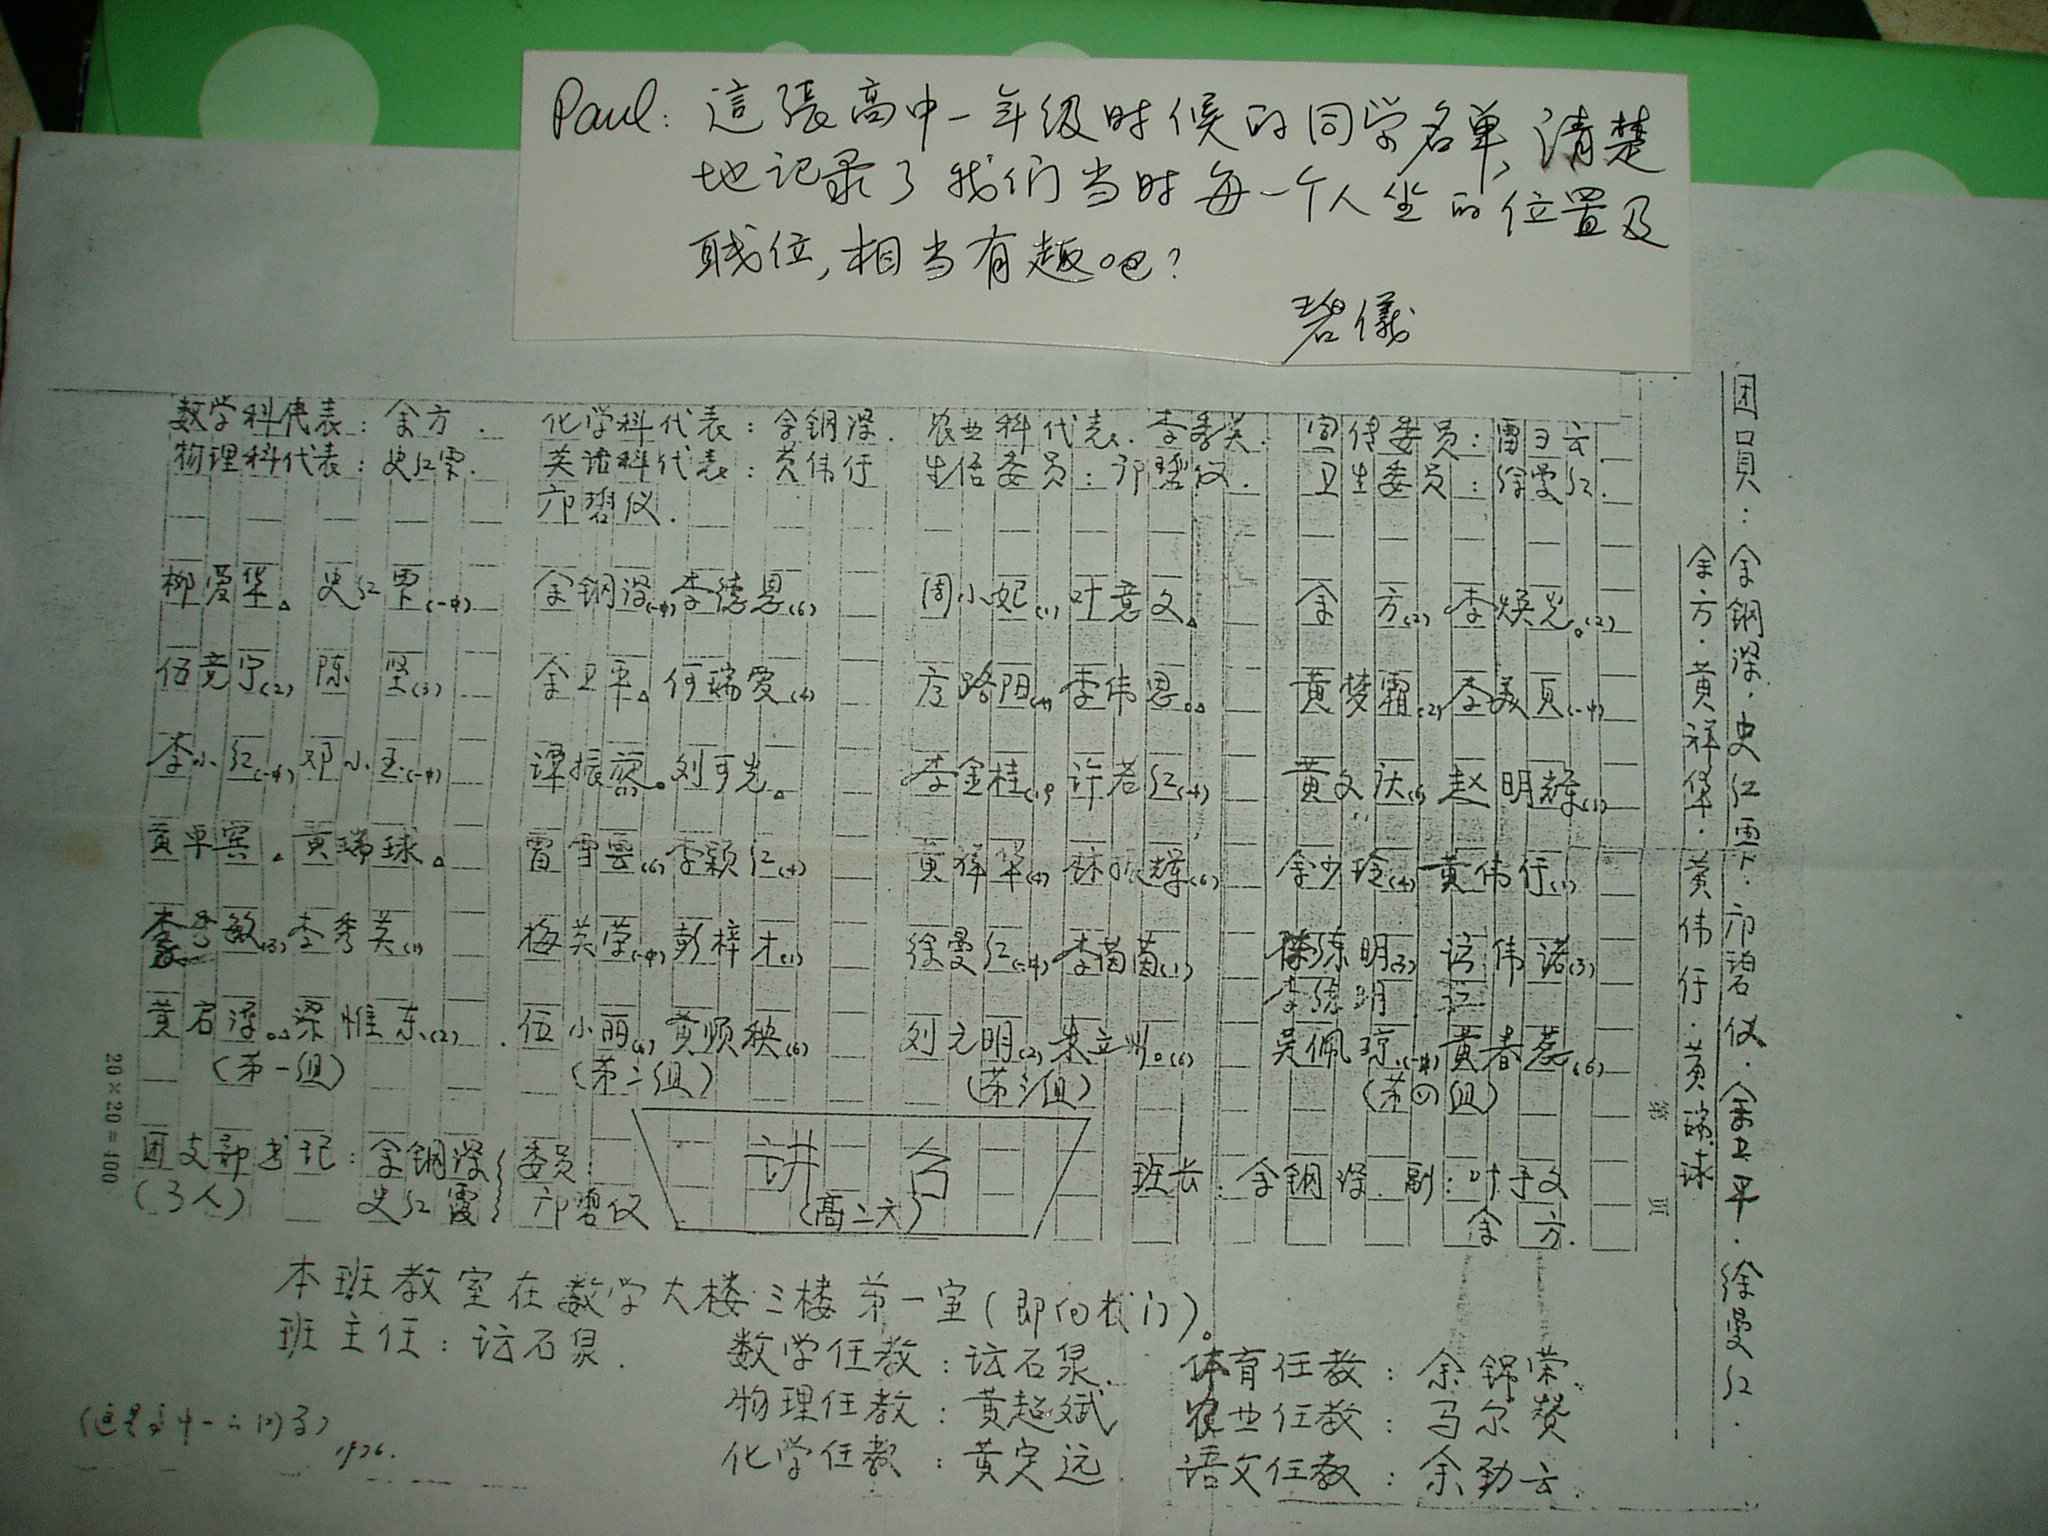 Paul: 這張高中一年级时候的同学名单,清楚
地记录了我们当时每一个人坐的位置及
职位,相当有趣吧?
碧儀
数学科代表:余方. 化学科代表:余钢深. 农业科代表:李秀英. 宣传委员:雷云.
物理科代表:史红霞. 英语科代表:黄伟仃 生活委员:邝碧仪. 卫生委员:徐曼红.
邝碧仪.
柳爱华△ 史红霞(一中) 余钢深(一中) 李德恩(6) 周小妃(1) 叶意文△ 余方(2) 李焕光。(2)
伍竞宁(2) 陈坚(3) 余卫平△ 何瑞爱(4) 方路阳(4) 李伟恩 黄梦霜(2) 李美贞(一中)
李小红(一中) 邓小玉(一中) 谭振 刘可光△ 李金桂(1) 许若红(4) 黄文达(6) 赵明辉(1)
黄平宾△ 黄瑞球△ 雷雪雲(6) 李颖红(4) 黄祥华(4) 林振辉(6) 余少玲(4) 黄伟仃(1)
李秀敏(3) 李秀英(1) 梅英荣(一中) 彭梓才(1) 徐曼红(一中) 李茵茵(1) 陈练明(3) 伟诺(3)
黄启 梁惟东(2) 伍小丽(4) 黄顺秧(6) 刘元明(2) 朱立州。(6) 吴佩琼(一中) 黄春蕊(6)
(第一组) (第二组) (第三组) (第四组)
团支部书记:余钢深 委员:
(3人) 史红霞 邝碧仪
讲台
(高二六)
班长:余钢深. 副:叶文
余方.
20×20=400
第 页
团員:余钢深.史红霞.邝碧仪.余卫平.徐曼红.
余方.黄祥华.黄伟仃.黄瑞球
本班教室在教学大楼三楼第一室(即向校门)。
班主任:石泉. 数学任教:石泉. 体育任教:余锦荣.
物理任教:黄超斌 农业任教:马尔赞
化学任教:黄定远. 语文任教:余劲云.
(这是高中一的)
1976.